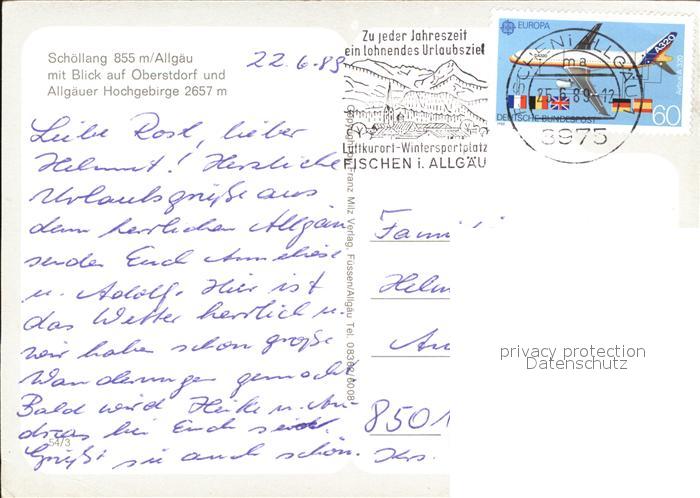 Schöllang 855 m/Allgäu
mit Blick auf Oberstdorf und
Allgäuer Hochgebirge 2657 m
22.6.89
Zu jeder Jahreszeit
ein lohnendes Urlaubsziel
Luftkurort-Wintersportplatz
FISCHEN i. ALLGÄU
EUROPA
A320
Airbus A 320
60
DEUTSCHE BUNDESPOST
FISCHEN i ALLGÄU
ma
25.6.89-12
8975
Liebe Rosl, lieber
Helmut! Herzliche
Urlaubsgrüße aus
dem herrlichen Allgäu
senden Euch Anneliese
u. Adolf. Hier ist
das Wetter herrlich u.
wir haben schon große
Wanderungen gemacht
Bald wird Heike u. An-
dreas bei Euch sein.
Grüßt sie auch schön.
54/3
Franz Milz Verlag, Füssen/Allgäu Tel. 08362/6008
Fami
Helm
An
8501
Krs.
privacy protection
Datenschutz